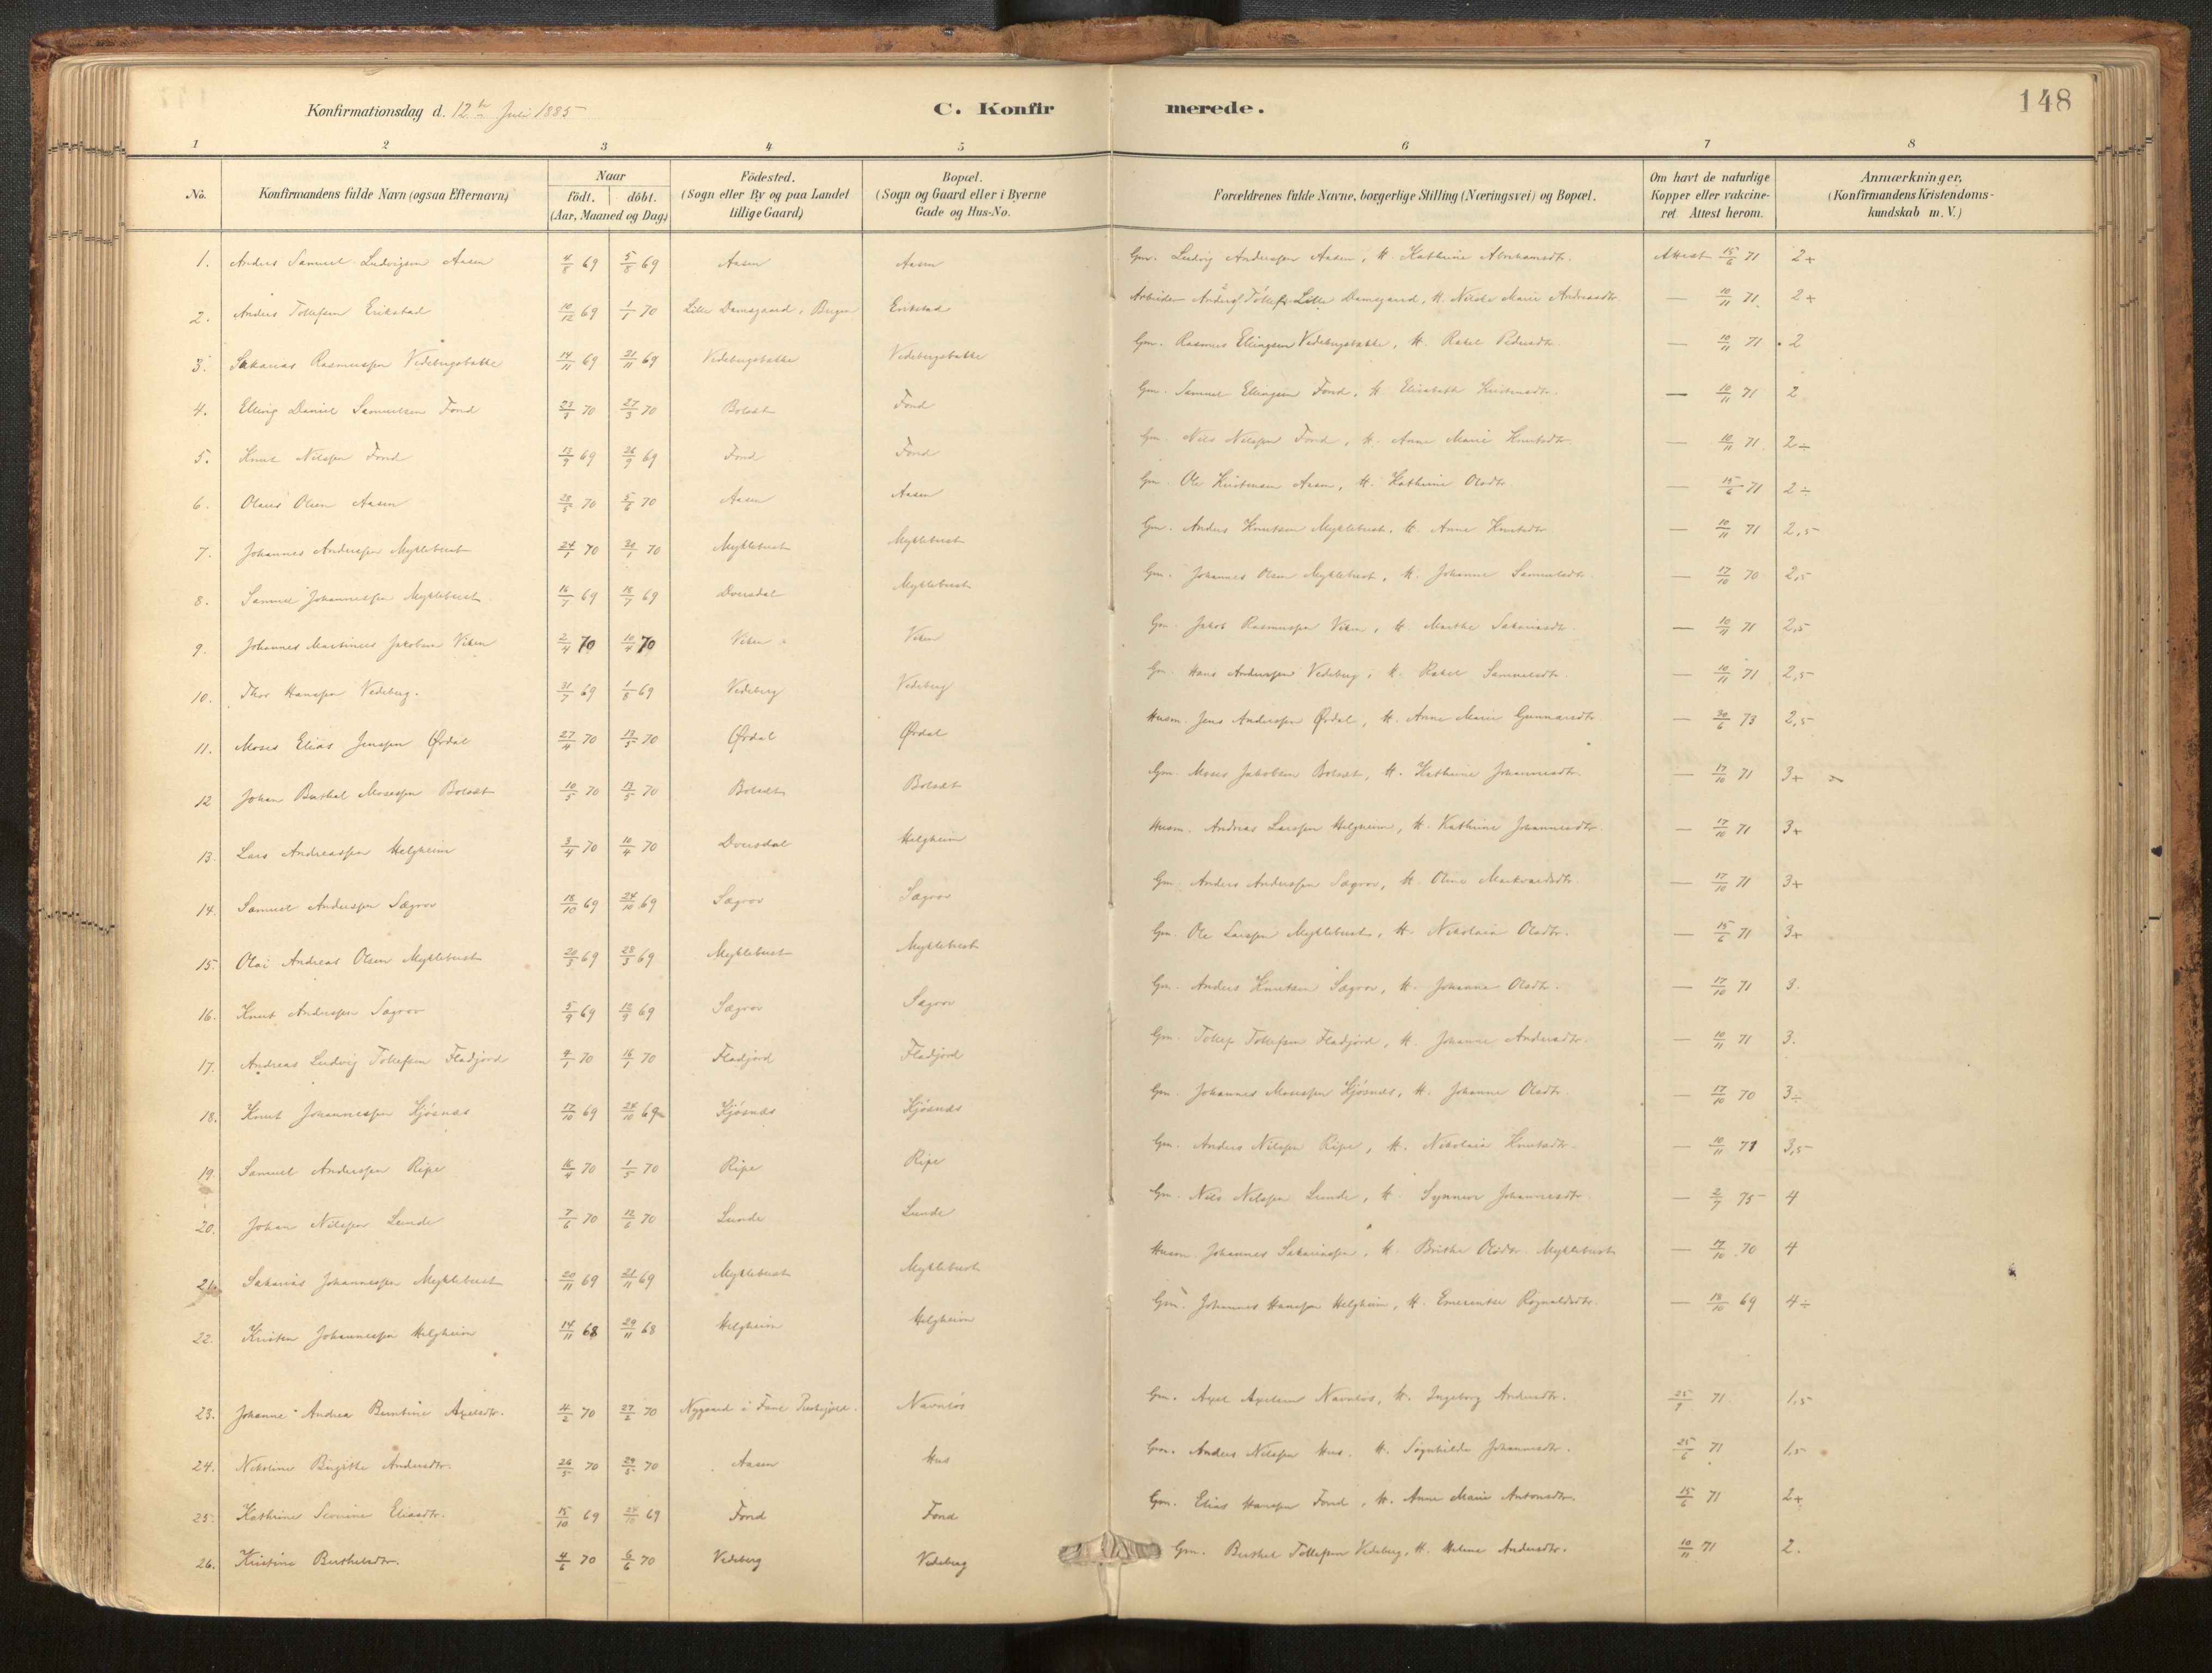 148
Konfirmationsdag d. 12te Juli 1885
C. Konfirmerede.
1 2 3 4 5 6 7 8
No. Konfirmandens fulde Navn (ogsaa Efternavn) Naar födt. döbt. (Aar, Maaned og Dag) Födested. (Sogn eller By og paa Landet tillige Gaard) Bopæl. (Sogn og Gaard eller i Byerne Gade og Hus-No. Forældrenes fulde Navne, borgerlige Stilling (Næringsvei) og Bopæl. Om havt de naturlige Kopper eller vakcineret. Attest herom. Anmærkninger, (Konfirmandens Kristendomskundskab m. V.)
1. Anders Samuel Ludvigsen Aasen 4/8 69 5/8 69 Aasen Aasen Gm. Ludvig Anderssen Aasen, H. Kathrine Abrahamsdtr. Attest 15/6 71 2+
2. Anders Tollefsen Erikstad 10/12 69 1/1 70 Lille Damsgaard, Bergen Erikstad Arbeider Anders Tollefs. Lille Damsgaard, H. Nilske Marie Andreasdtr. — 10/11 71. 2+
3. Sakarias Rasmussen Vedebergsbakke 14/11 69 21/11 69 Vedebergsbakke Vedebergsbakke Gm. Rasmus Ellingsen Vedebergsbakke, H. Rakel Pedersdtr. — 10/11 71 2
4. Elling Daniel Samuelsen Fond 23/3 70 27/3 70 Bolsæt Fond Gm. Samuel Ellingsen Fond, H. Elisabeth Kristensdtr. — 10/11 71 2
5. Knut Nilssen Fond 13/9 69 26/9 69 Fond Fond Gm. Nils Nilssen Fond, H. Anne Marie Knutsdtr. — 10/11 71. 2÷
6. Olaus Olsen Aasen 28/5 70 5/6 70 Aasen Aasen Gm. Ole Kristensen Aasen, H. Kathrine Olsdtr. — 15/6 71 2÷
7. Johannes Anderssen Myklebust 24/1 70 30/1 70 Myklebust Myklebust Gm. Anders Knutsen Myklebust, H. Anne Knutsdtr. — 10/11 71 2,5
8. Samuel Johannessen Myklebust 16/7 69 18/7 69 Dvergsdal Myklebust Gm. Johannes Olsen Myklebust, H. Johanne Samuelsdtr. — 17/10 70 2,5
9. Johannes Martinus Jakobsen Viken 2/4 70 10/4 70 Viken Viken Gm. Jakob Rasmussen Viken, H. Marthe Sakariasdtr. — 10/11 71 2,5
10. Thor Hanssen Vedeberg. 31/7 69 1/8 69 Vedeberg Vedeberg Gm. Hans Anderssen Vedeberg, H. Rakel Samuelsdtr. — 10/11 71 2,5
11. Moses Elias Jenssen Ørdal 27/4 70 13/5 70 Ørdal Ørdal Husm. Jens Anderssen Ørdal, H. Anne Marie Gunnarsdtr. — 30/6 73 2,5
12 Johan Berthel Mosessen Bolsæt 10/5 70 13/5 70 Bolsæt Bolsæt Gm. Moses Jakobsen Bolsæt, H. Kathrine Johannesdtr. — 17/10 71 3+
13. Lars Andreassen Helgheim 3/4 70 10/4 70 Dvergsdal Helgheim Husm. Andreas Larssen Helgheim, H. Kathrine Johannesdtr. — 17/10 71 3+
14. Samuel Anderssen Sægrov 18/10 69 24/10 69 Sægrov Sægrov Gm. Anders Anderssen Sægrov, H. Oline Markvardsdtr. — 17/10 71 3+
15. Olai Andreas Olsen Myklebust 20/3 69 28/3 69 Myklebust Myklebust Gm. Ole Larssen Myklebust, H. Nikolaia Olsdtr. — 15/6 71 3+
16. Knut Anderssen Sægrov 5/9 69 12/9 69 Sægrov Sægrov Gm. Anders Knutsen Sægrov, H. Johanne Olsdtr. — 17/10 71 3.
17. Andreas Ludvig Tollefsen Fladjord 9/1 70 16/1 70 Fladjord Fladjord Gm. Tollef Tollefsen Fladjord, H. Johanne Andersdtr. — 10/11 71 3.
18. Knut Johannessen Kjösnæs 17/10 69 24/10 69 Kjösnæs Kjösnæs Gm. Johannes Mosessen Kjösnæs, H. Johanne Olsdtr. — 17/10 70 3÷
19. Samuel Anderssen Ripe 16/4 70 1/5 70 Ripe Ripe Gm. Anders Nilssen Ripe, H. Nikolaia Knutsdtr. — 10/11 71 3,5
20. Johan Nilssen Lunde 7/6 70 12/6 70 Lunde Lunde Gm. Nils Nilssen Lunde, H. Synneve Johannesdtr. — 2/7 75 4
21. Sakarias Johannessen Myklebust 20/11 69 21/11 69 Myklebust Myklebust Husm. Johannes Sakariassen, H. Brithe Olsdtr. Myklebust — 17/10 70 4
22. Kristen Johannessen Helgheim 14/11 68 29/11 68 Helgheim Helgheim Gm. Johannes Hanssen Helgheim, H. Emerentse Rognaldsdtr. — 18/10 69 4÷
23. Johanne Andrea Berntine Axelsdtr. 4/2 70 27/2 70 Nygaard i Fane Præstegjeld. Navnløs Gm. Axel Axelsen Navnløs, H. Ingeborg Andersdtr. 25/9 71. 1,5
24. Nikoline Birgitte Andersdtr. 26/5 70 29/5 70 Aasen Hus Gm. Anders Nilssen Hus. H. Søgnhilde Johannesdtr. 25/6 71 1,5
25. Kathrine Severine Eliasdtr. 15/10 69 24/10 69 Fond Fond Gm. Elias Hanssen Fond, H. Anne Marie Antonsdtr. 15/6 71 2+
26. Kristine Berthelsdtr. 4/6 70 6/6 70 Vedeberg Vedeberg Gm. Berthel Tollefsen Vedeberg, H. Helene Andersdtr. 10/11 71 2.